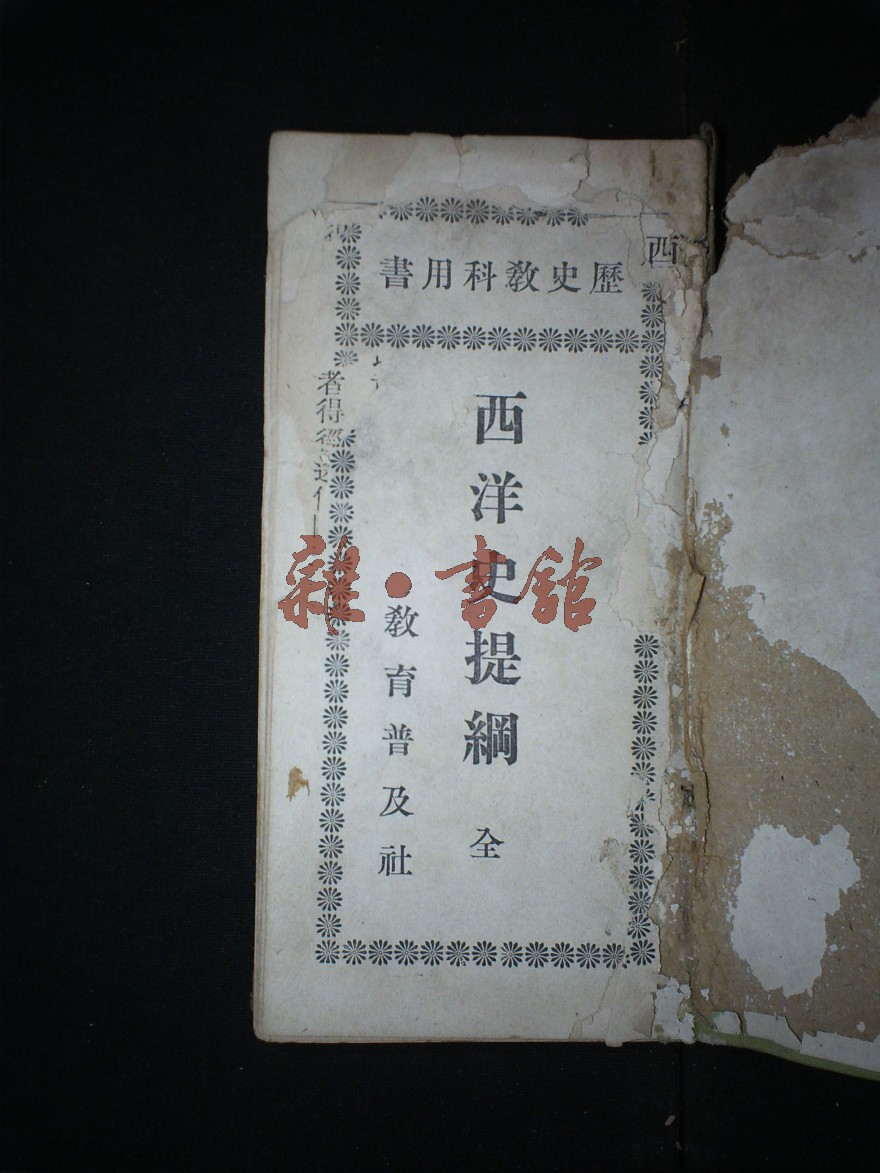 歷史教科用書
西
西洋史提綱 全
教育普及社
者得
雜·書館